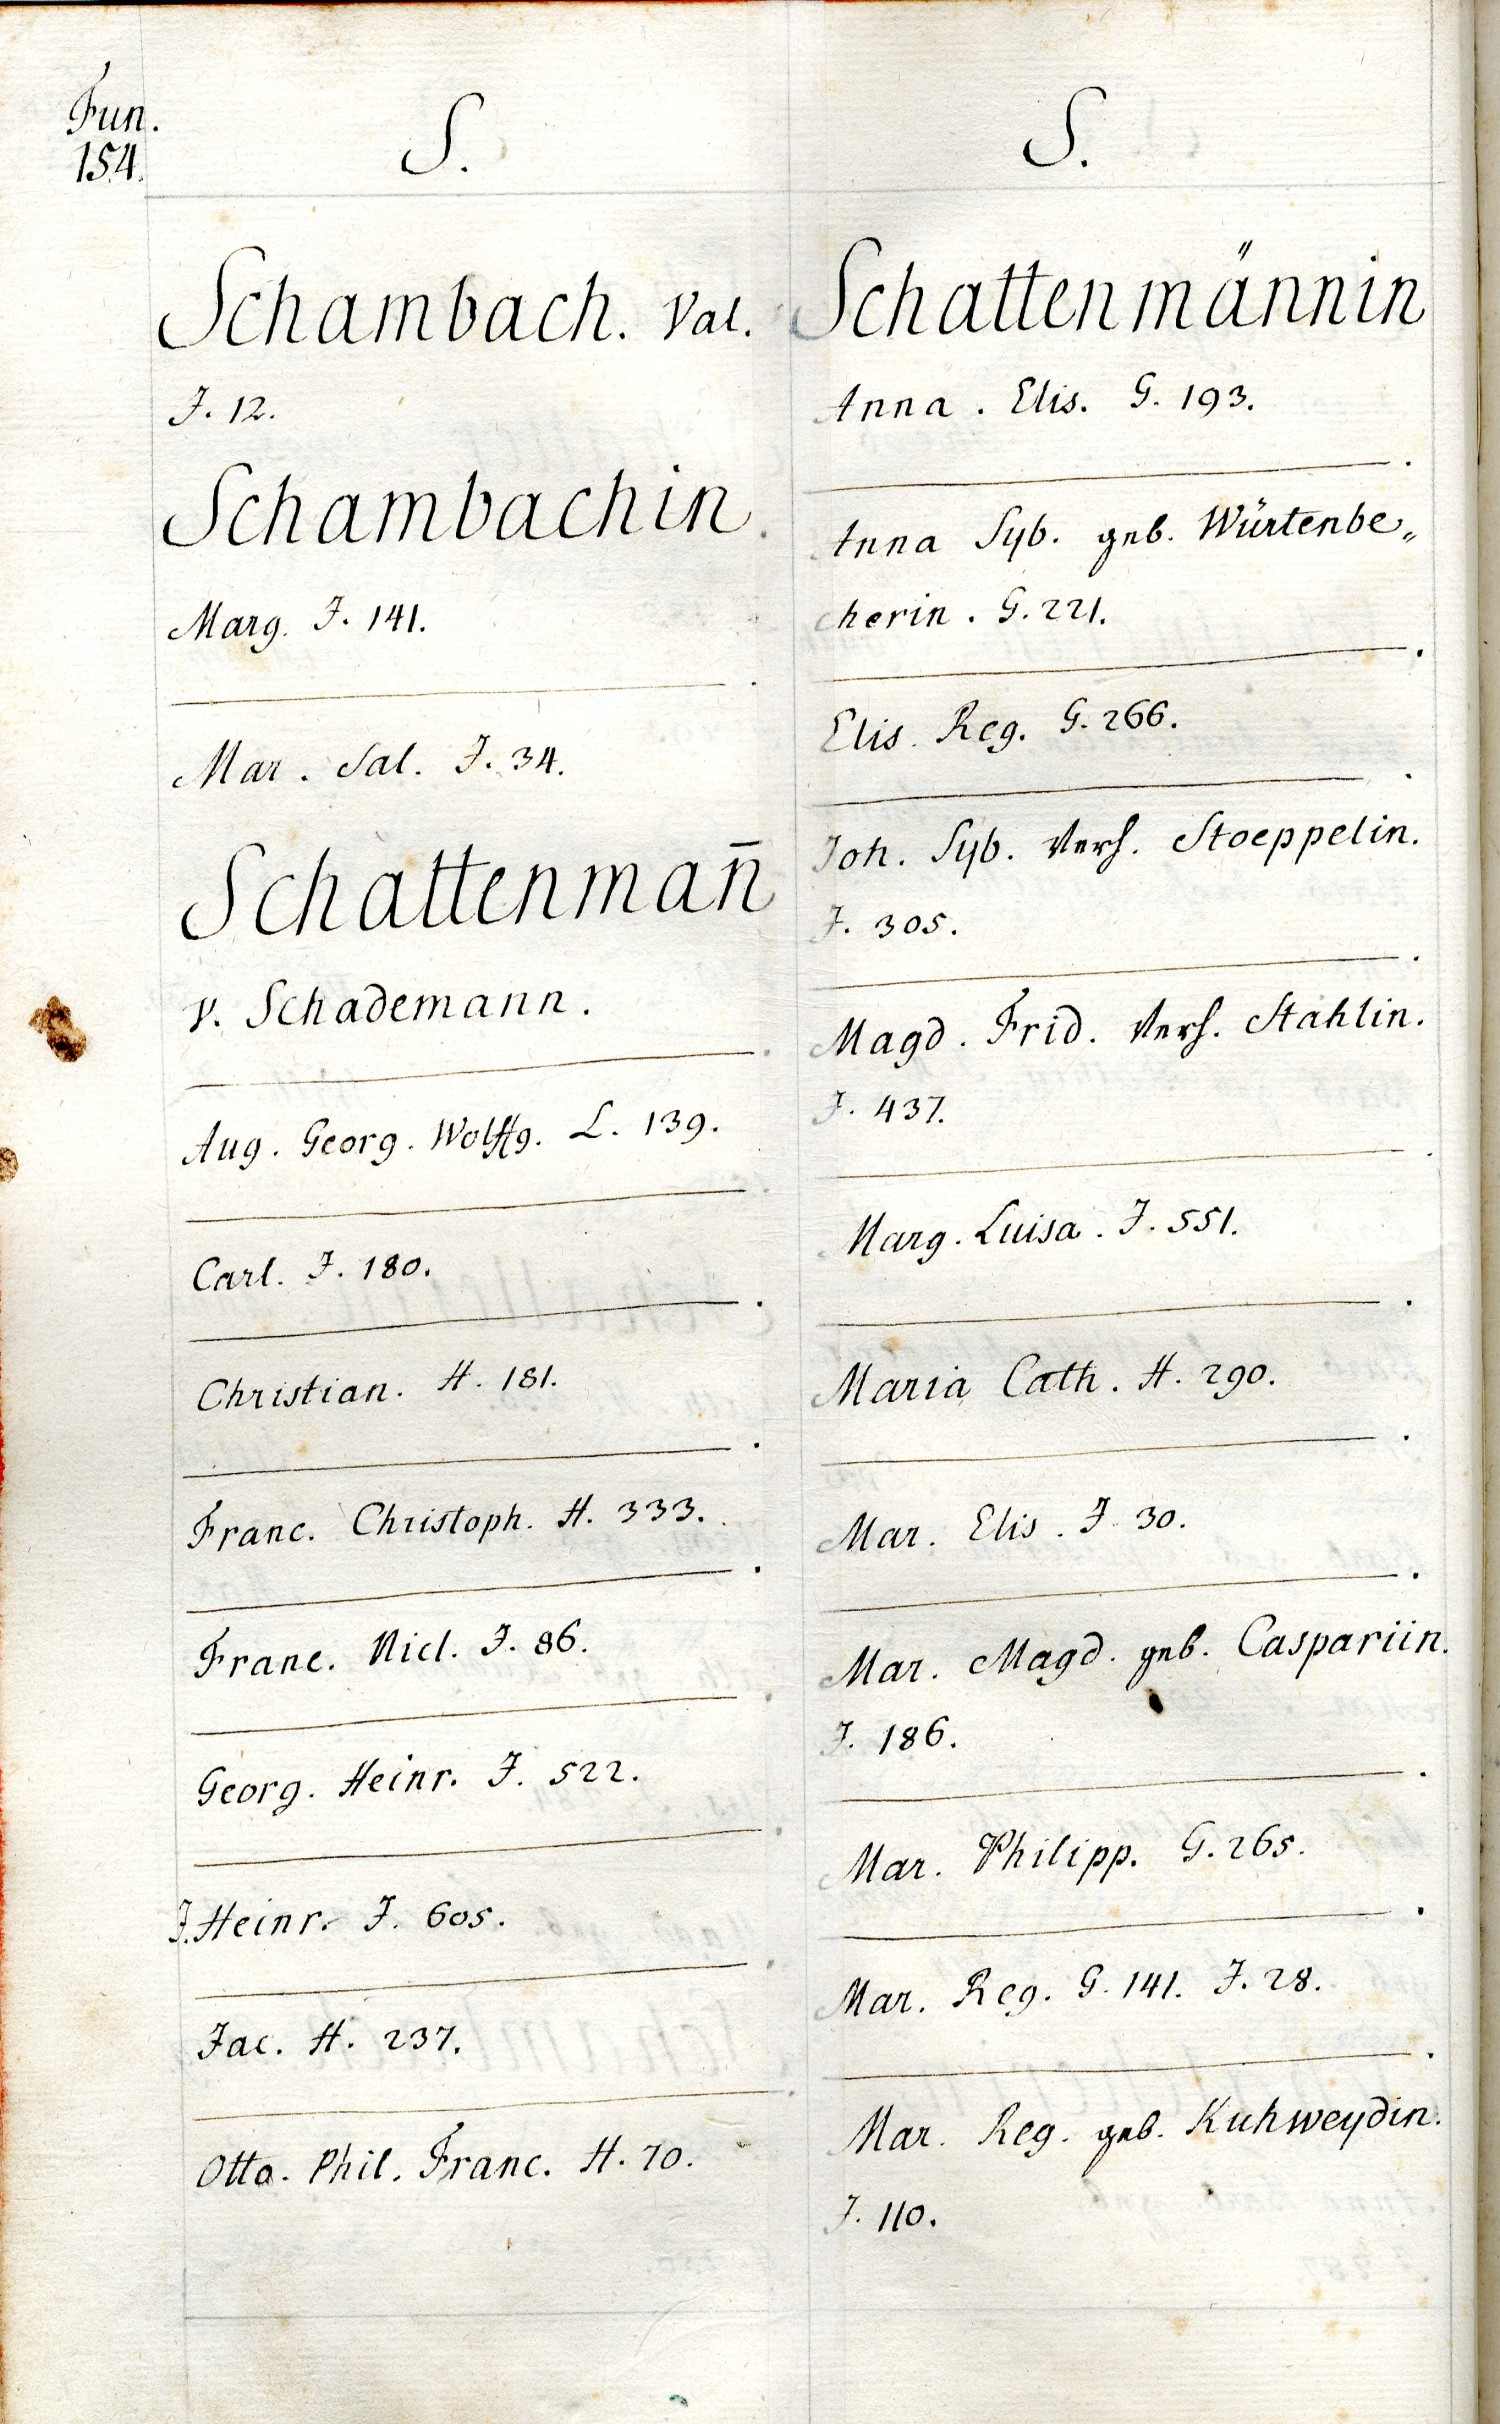 Fun.
154.
S.
Schambach. Val.
J. 12.
Schambachin.
Marg. J. 141.
Mar. Sal. J. 34.
Schattenman̄
v. Schademann.
Aug. Georg. Wolffg. L. 139.
Carl. J. 180.
Christian. H. 181.
Franc. Christoph. H. 333.
Franc. Nicl. J. 86.
Georg. Heinr. J. 522.
J. Heinr. J. 605.
Jac. H. 237.
Otto. Phil. Franc. H. 70.
S.
Schattenmännin
Anna. Elis. G. 193.
Anna Syb. geb. Würtenbe„
cherin. G. 221.
Elis. Reg. G. 266.
Joh. Syb. Verh. Stoeppelin.
J. 305.
Magd. Frid. Verh. Stahlin.
J. 437.
Marg. Luisa. J. 551.
Maria Cath. H. 290.
Mar. Elis. J. 30.
Mar. Magd. geb. Caspariin.
J. 186.
Mar. Philipp. G. 265.
Mar. Reg. G. 141. J. 28.
Mar. Reg. geb. Kuhweydin.
J. 110.